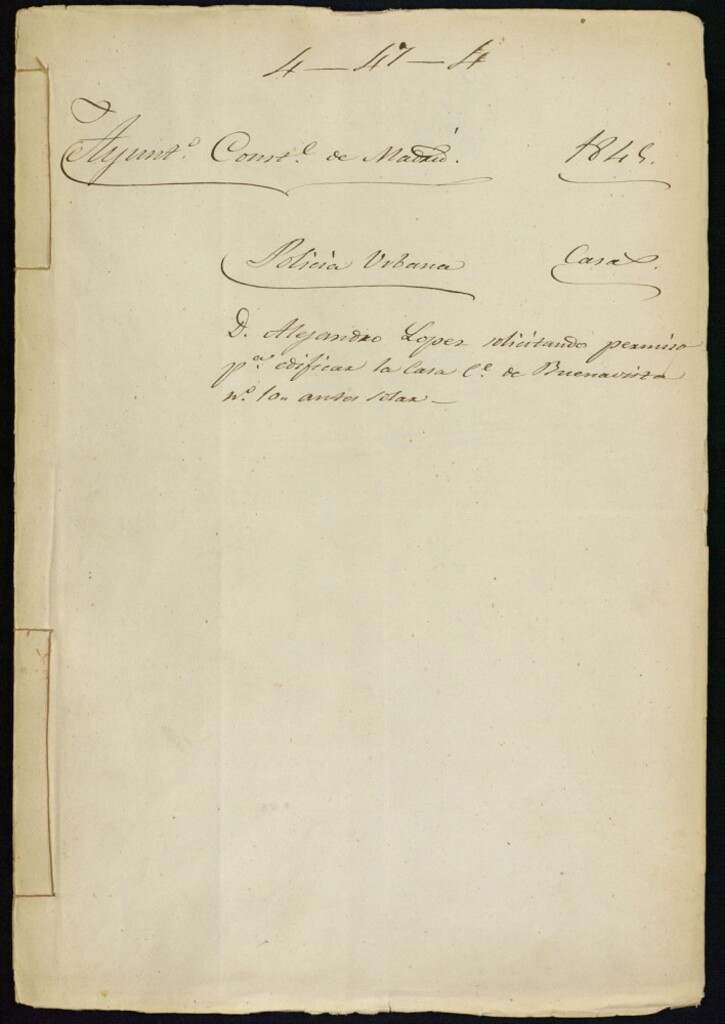 4-47-4
Ayunt.º Const.l de Madrid. 1845.
Policia Urbana Casas.
D. Alejandro Lopez solicitando permiso
p.a edificar la Casa C.e de Buenavista
n.º 10 antes solar